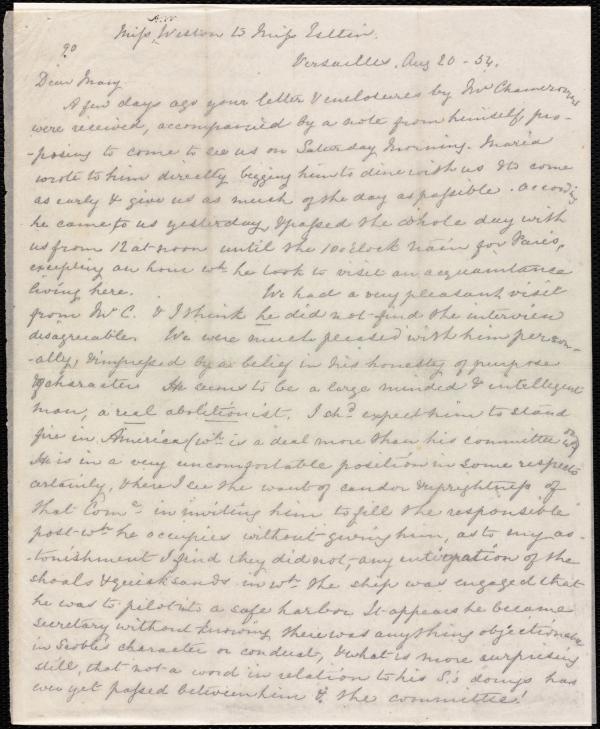 Miss A.W. Weston to Miss Estlin.
Versailles, Aug 20 - 54.
Dear Mary
A few days ago your letter & enclosures by Mr Chamerovzow
were received, accompanied by a note from himself pro-
-posing to come to see us on Saturday Morning. Maria
wrote to him directly begging him to dine with us & to come
as early & give us as much of the day as possible. Accordg
he came to us yesterday, & passed the whole day with
us from 12 at noon until the 10 o'clock train for Paris,
excepting an hour wh he took to visit an acquaintance
living here. We had a very pleasant visit
from Mr C. & I think he did not find the interview
disagreeable. We were much pleased with him person-
-ally, & impressed by a belief in his honesty of purpose
& character. He seems to be a large minded & intelligent
man, a real abolitionist. I shd expect him to stand
fire in America (wh is a deal more than his committee
He is in a very uncomfortable position in some respects
certainly, & here I see the want of candor & uprightness of
that Come in inviting him to fill the responsible
post wh he occupies without giving him, as to my as-
-tonishment I find they did not, any intimation of the
shoals & quicksands in wh the ship was engaged that
he was to pilot into a safe harbor. It appears he became
secretary without knowing there was anything objectionable
in Scoble's character or conduct, & what is more surprising
still, that not a word in relation to his S.'s doings has
ever yet passed between him & the committee!